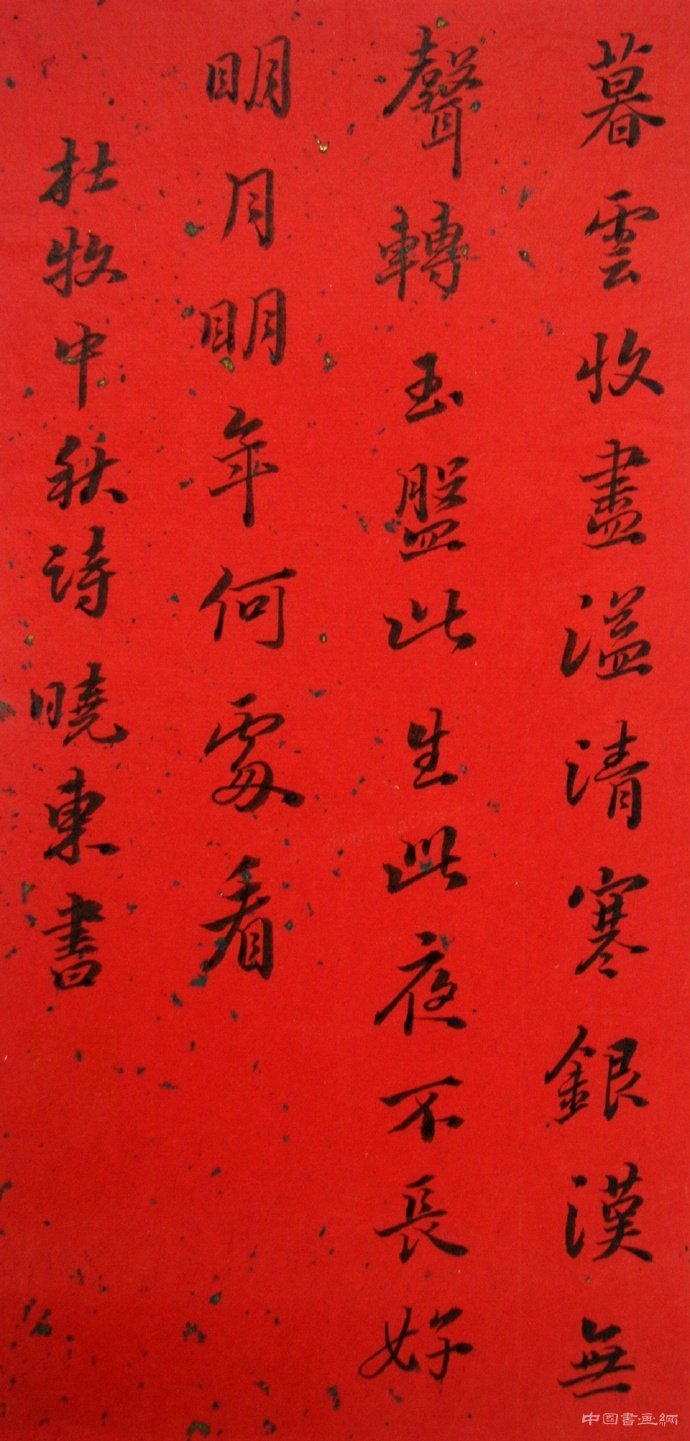 暮雲收盡溢清寒銀漢無
聲轉玉盤此生此夜不長好
明月明年何處看
杜牧中秋詩曉東書
中国書画網